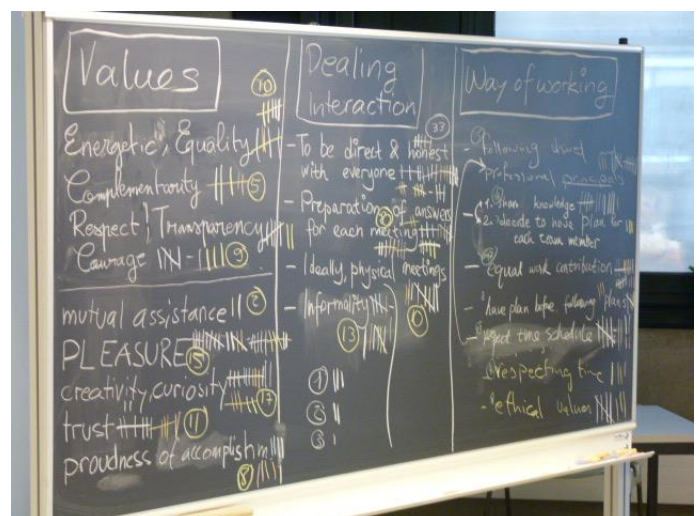 Values
10
Energetic, Equality
Complementarity 5
Respect, Transparency
Courage 9
mutual assistance 2
PLEASURE 15
creativity, curiosity
17
trust 11
proudness of accomplishm
8
Dealing
Interaction
37
- To be direct & honest
with everyone
- Preparation of answers
for each meeting
- Ideally, physical meetings
- Informality 10
13
1
2
3
Way of working
- following
professional
1. Share knowledge
2. decide to have plan for
each team member
- Equal work contribution
- have plan before following plans
- respect time schedule
- respecting time
- ethical values